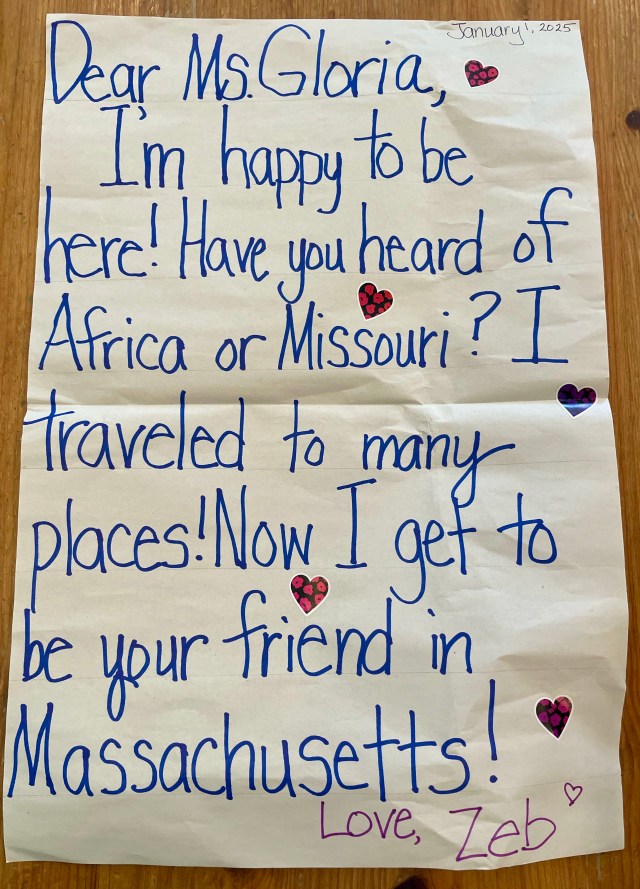 January 1, 2025
Dear Ms. Gloria,
I'm happy to be
here! Have you heard of
Africa or Missouri? I
traveled to many
places! Now I get to
be your friend in
Massachusetts!
Love, Zeb